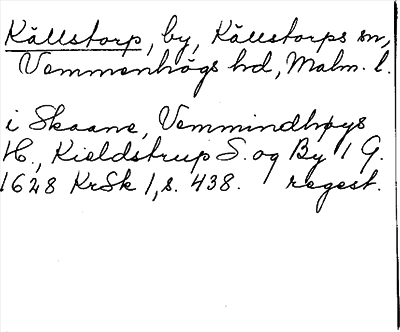 Källstorp, by, Källstorps sn,
Vemmenhögs hd, Malm. l.
i Skaane, Vemmindhøys
H., Kieldstrup S. og By 1 G.
1628 KrSk 1, s. 438. regest.